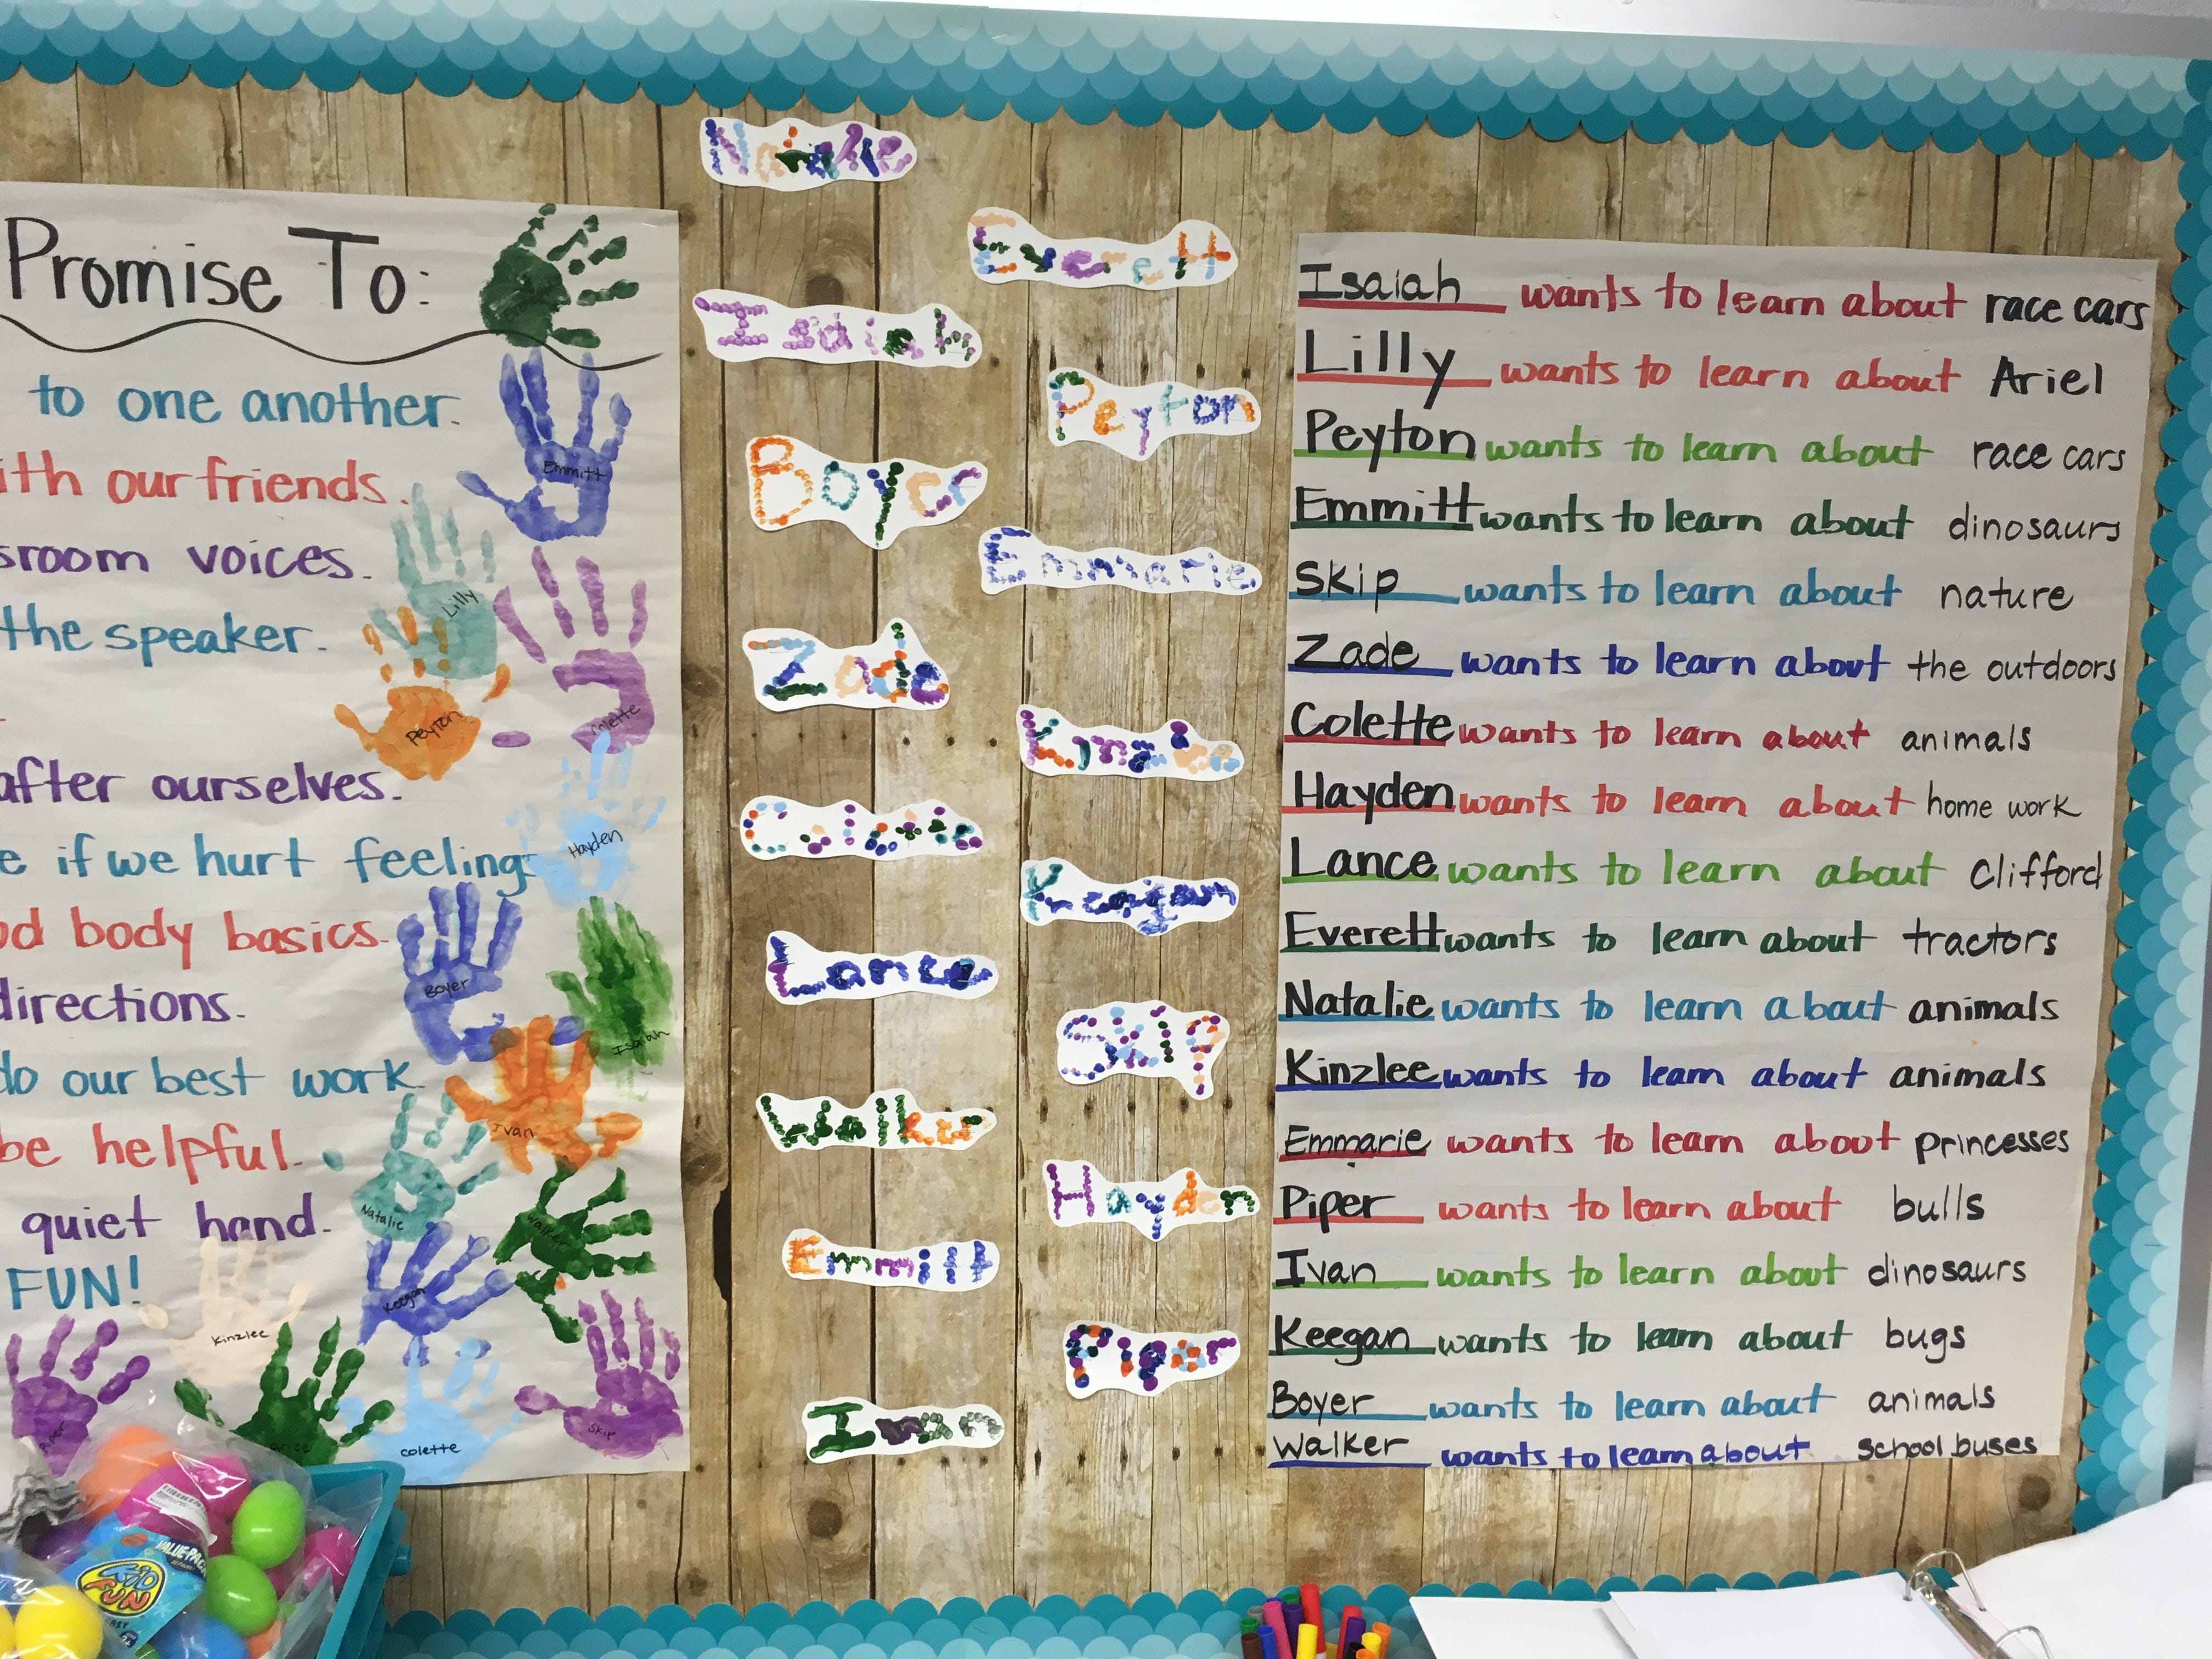 Promise To:
to one another.
ith our friends.
sroom voices.
the speaker.
after ourselves.
e if we hurt feelings
od body basics.
directions.
do our best work
be helpful.
quiet hand.
FUN!
Emmitt
Lilly
Peyton
Colette
Hayden
Boyer
Isaiah
Ivan
Natalie
Walker
Keegan
Kinzlee
Piper
colette
Skip
VALUE PAC
KID
FUN
Natalie
Everett
Isaiah
Peyton
Boyer
Emmarie
Zade
Kinzlee
Colette
Keegan
Lance
Skip
Walker
Hayden
Emmitt
Piper
Ivan
Isaiah wants to learn about race cars
Lilly wants to learn about Ariel
Peyton wants to learn about race cars
Emmitt wants to learn about dinosaurs
Skip wants to learn about nature
Zade wants to learn about the outdoors
Colette wants to learn about animals
Hayden wants to learn about home work
Lance wants to learn about Clifford
Everett wants to learn about tractors
Natalie wants to learn about animals
Kinzlee wants to learn about animals
Emmarie wants to learn about princesses
Piper wants to learn about bulls
Ivan wants to learn about dinosaurs
Keegan wants to learn about bugs
Boyer wants to learn about animals
Walker wants to learn about school buses